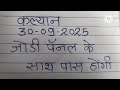 कल्यान
30-09-2025
जोडी पॅनल के
साथ पास होगी